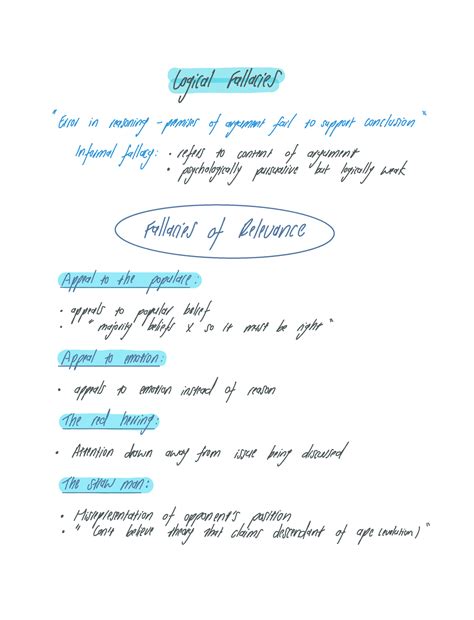 Logical Fallacies
"Error in reasoning - premises of argument fail to support conclusion"
Informal fallacy: • refers to content of argument
• psychologically pursuative but logically weak
Fallacies of Relevance
Appeal to the populace:
• appeals to popular belief
• "majority beliefs X so it must be right"
Appeal to emotion:
• appeals to emotion instead of reason
The red herring:
• Attention drawn away from issue being discussed
The straw man:
• Misrepresentation of opponent's position
• "Can't believe theory that claims descendant of ape (evolution)"